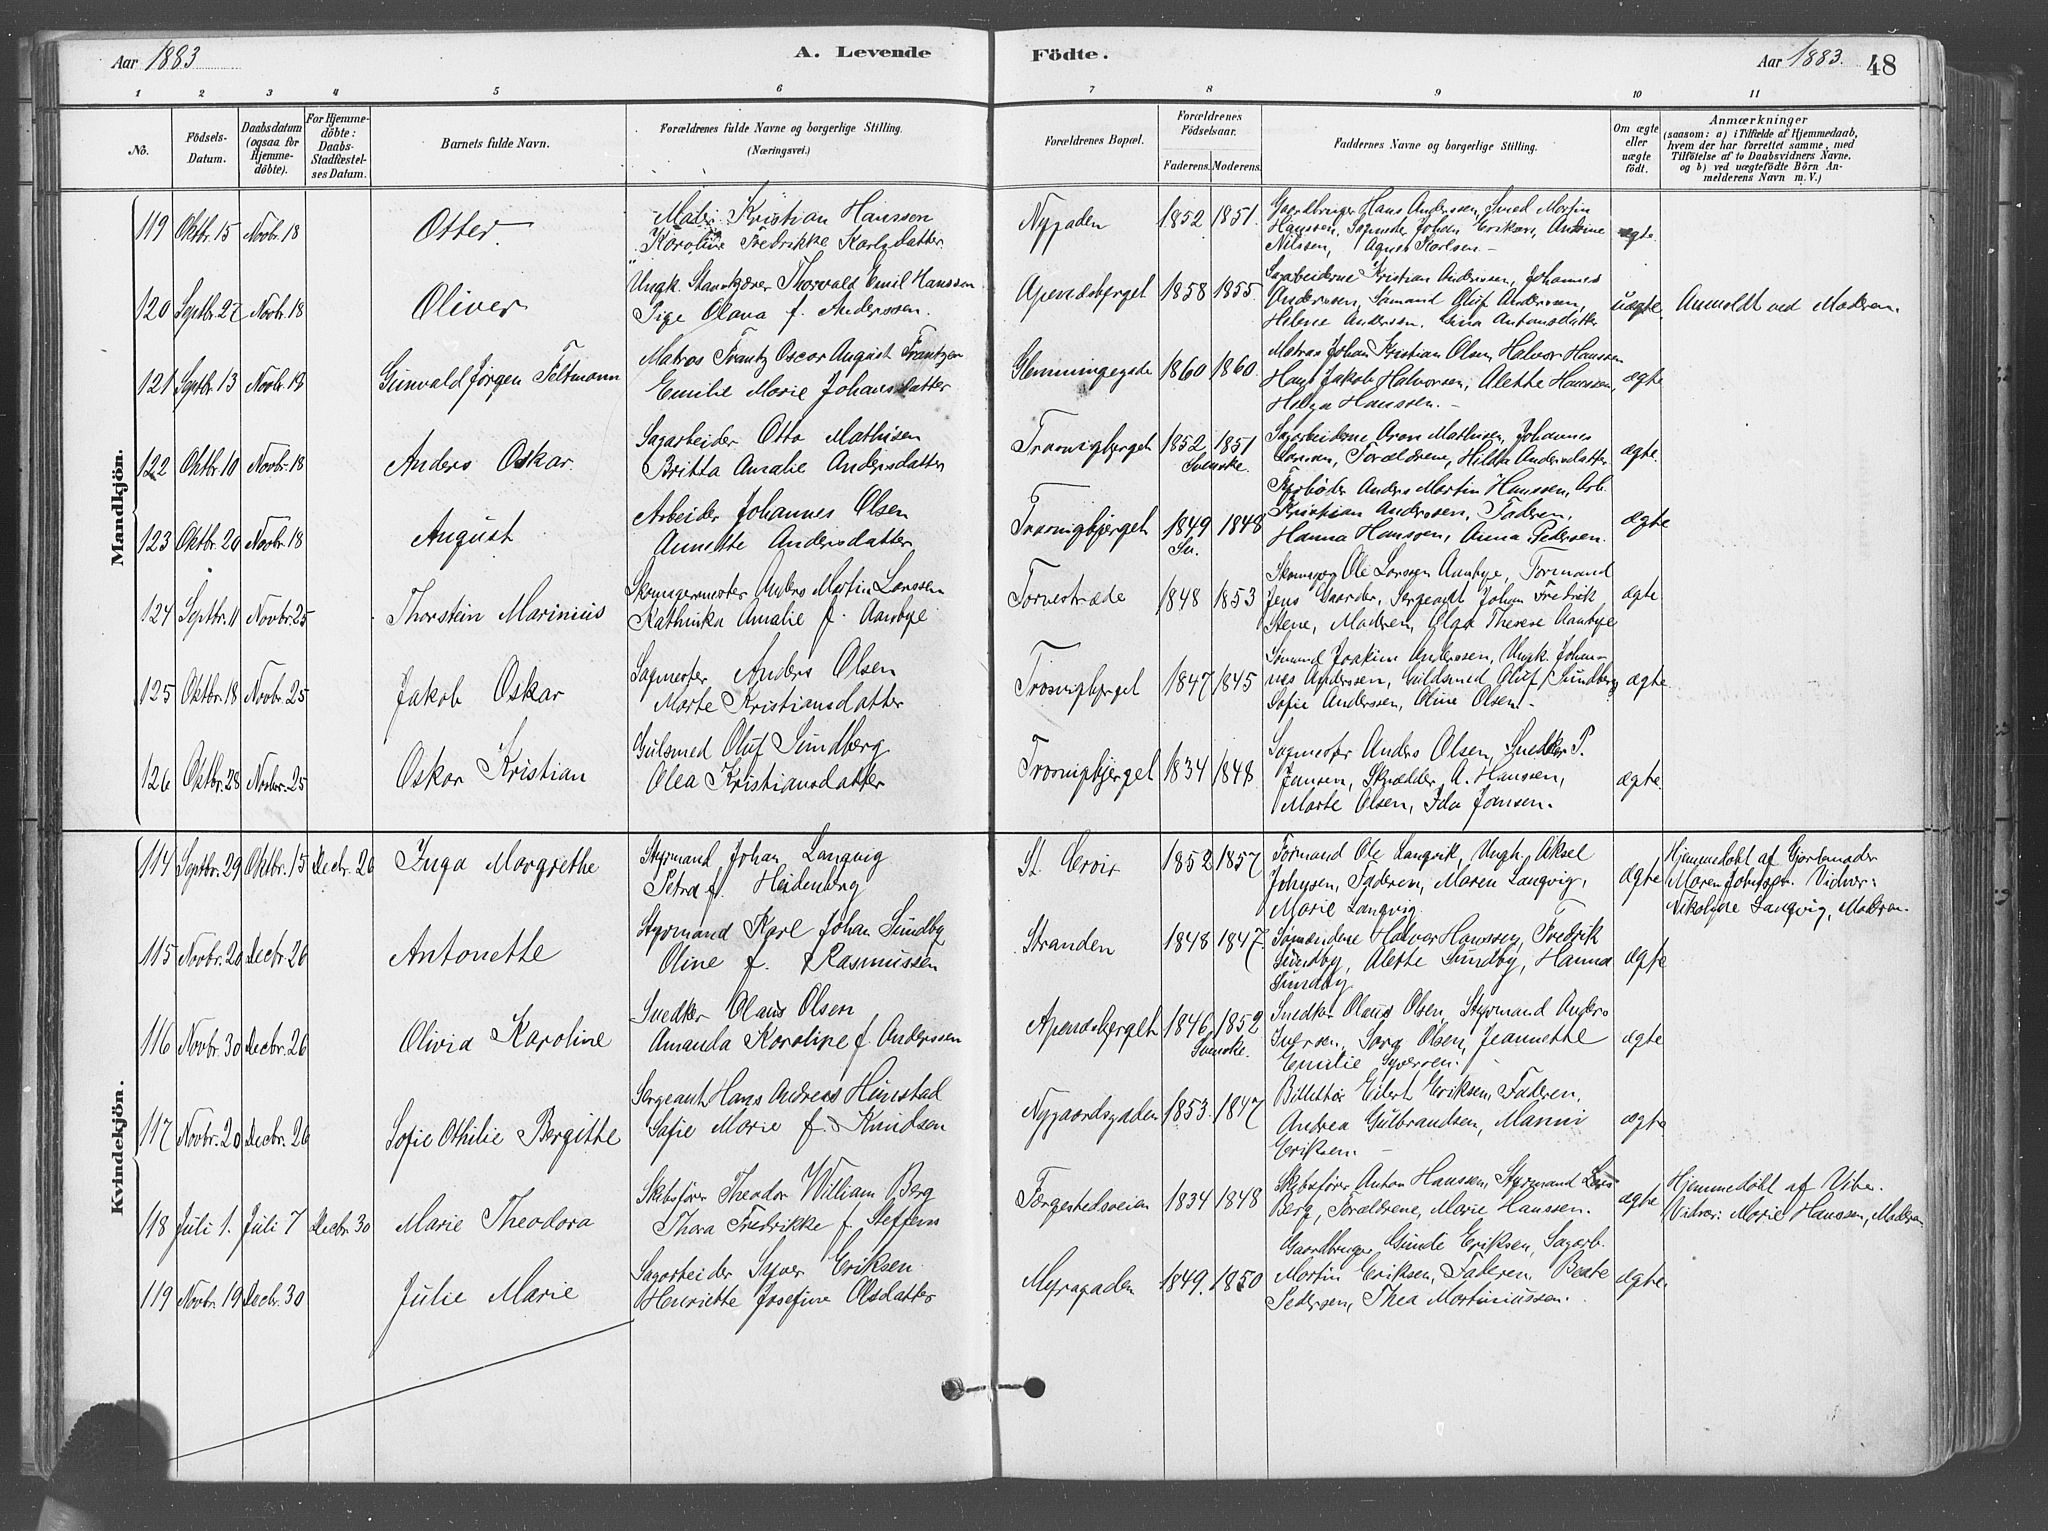 Aar 1883
A. Levende
Födte.
Aar 1883.
48
1 2 3 4 5 6 7 8 9 10 11
No.
Födsels-
Datum.
Daabsdatum
(ogsaa for
Hjemme-
döbte).
For Hjemme-
döbte:
Daabs-
Stadfæstel-
ses Datum.
Barnets fulde Navn.
Forældrenes fulde Navne og borgerlige Stilling.
(Næringsvei.)
Forældrenes Bopæl.
Forældrenes
Födselsaar.
Faderens. Moderens.
Faddernes Navne og borgerlige Stilling.
Om ægte
eller
uægte
födt.
Anmærkninger
(saasom: a) i Tilfælde af Hjemmedaab,
hvem der har forrettet samme, med
Tilföielse af to Daabsvidners Navne,
og b) ved uægtefödte Börn An-
melderens Navn m. V.)
Mandkjön.
119 Oktbr. 15 Novbr. 18 Otter.
Kristian Hanssen
Karoline Fredrikke Karlsdatter
1852 1851.
Gaardbruger Hans Anderssen, Smed Martin
Hanssen, Johan Eriksen,
Nilssen, Agnes Karlsen.
ægte
120 Septbr. 27 Novbr. 18 Oliver
Ungk. Thorvald Emil Hanssen
Pige Olava f. Anderssen.
Apenesbjerget 1858 1855.
Sagarbeiderne Kristian Anderssen, Johannes
Anderssen, Sømand Oluf Anderssen,
Helene Andersen, Lina Antonsdatter
uægte. Anmeldt ved Moderen.
121 Septbr. 13 Novbr. 19 Gunvald Jørgen Feltmann
Matros Frantz Oscar August Frantzen
Emilie Marie Johansdatter
Glemmingegade 1860 1860.
Matros Johan Kristian Olsen, Halvor Hanssen
Jakob Halvorsen, Alette Hanssen,
Helga Hanssen.
ægte
122 Oktbr. 10 Novbr. 18 Anders Oskar.
Sagarbeider Otto Mathisen
Britta Amalie Andersdatter
Trosvigbjerget 1852 1851
Svenske.
Sagarbeiderne Aron Mathisen, Johannes
Larsen, Forældrene, Hilda Andersdatter
ægte.
123 Oktbr. 20 Novbr. 18 August
Arbeider Johannes Olsen
Annette Andersdatter
Trosvigbjerget 1849 1848
Sv.
Fyrbøder Anders Martin Hanssen, Arb.
Kristian Anderssen, Faderen,
Hanna Hanssen, Anna Pedersen.
ægte
124 Septbr. 11 Novbr. 25 Thorstein Marinius
Skomagermester Anders Martin Larssen
Kathinka Amalie f. Aambye
Torvestræde 1848 1853
Skomager Ole Larssen Aambye, Formand
Jens Vaarder, Sergeant Johan Fredrik
Stene, Moderen, Olga Therese Aambye
ægte
125 Oktbr. 18 Novbr. 25 Jakob Oskar
Sagmester Anders Olsen
Marte Kristiansdatter
Trosvigbjerget 1847 1845
Sømand Joakim Anderssen, Ungk. Johan-
nes Anderssen, Guldsmed Oluf Sundberg
Sofie Anderssen, Oline Olsen.
ægte
126 Oktbr. 28 Novbr. 25 Oskar Kristian
Gulsmed Oluf Sundberg
Olea Kristiansdatter
Trosvigbjerget 1834 1848
Sagmester Anders Olsen, Snedker P.
Jansen, Skrædder A. Hanssen,
Marte Olsen, Ida Jansen.
ægte
Kvindekjön.
114 Septbr. 29 Oktbr. 15 Decbr. 26 Inga Margrethe
Styrmand Johan Langvig
Petra f. Heidenberg
St. Croix 1852 1857
Formand Ole Langvik, Ungk. Aksel
Johnsen, Faderen, Maren Langvig,
Marie Langvig.
ægte
Hjemmedøbt af Gjordemoder
Maren Johnsen. Vidner:
Nikoline Langvig, Moderen.
115 Novbr. 20 Decbr. 26 Antonette
Styrmand Karl Johan Sundby
Oline f. Rasmussen
Stranden 1848 1847.
Sømændene Halvor Hanssen, Fredrik
Sundby, Alette Sundby, Hanna
Sundby
ægte
116 Novbr. 30 Decbr. 26 Olivia Karoline
Snedker Olaus Olsen
Amanda Karoline f. Anderssen
Apenesbjerget 1846 1852
Svenske.
Snedker Olaus Olsen, Styrmand Anders
Iversen, Sara Olsen, Jeannette
Emilie Syversen.
ægte
117 Novbr. 20 Decbr. 26 Sofie Othilie Bergitte
Sergeant Hans Andreas Hunstad
Sofie Marie f. Knudsen
Nygaardsgaden 1853. 1847
Billettør Eilert Eriksen, Faderen,
Andrea Gulbrandsen, Manni
Eriksen.
ægte
118 Juli 1. Juli 7 Decbr. 30 Marie Theodora
Skibsfører Theodor William Berg
Thora Fredrikke f. Steffens
Færgestedsveien 1834 1848
Skibsfører Anton Hanssen, Styrmand
Berg, Forældrene, Marie Hanssen.
ægte
Hjemmedøbt af Vibe.
Vidner: Marie Hanssen, Moderen.
119 Novbr. 19 Decbr. 30 Julie Marie
Sagarbeider Syver Eriksen
Henriette Josefine Olsdatter
Myragaden 1849. 1850
Gaardbruger Gunde Eriksen, Sagarb.
Martin Eriksen, Faderen, Beate
Pedersen, Thea Martiniussen.
ægte